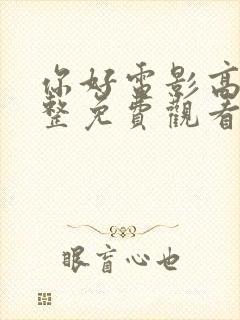 你好雷影高
整免費觀看
眼盲心也